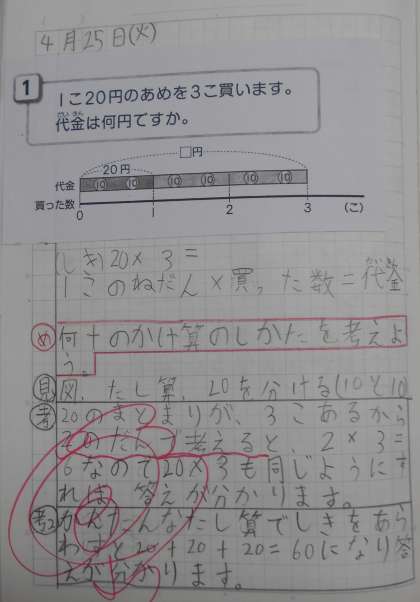 4月25日(火)
1
1こ20円のあめを3こ買います。
代金は何円ですか。
□円
20円
代金 10 10 10 10 10 10
買った数 0 1 2 3 (こ)
(しき) 20×3=
1このねだん×買った数=代金
め 何十のかけ算のしかたを考えよ
う。
見 図、たし算、20を分ける(10と10)
考 20のまとまりが、3こあるから
2のだんで考えると、2×3=
6なので20×3も同じようにす
れば、答えが分かります。
考2 かんたんなたし算でしきをあら
わすと20+20+20=60になり答
えが分かります。